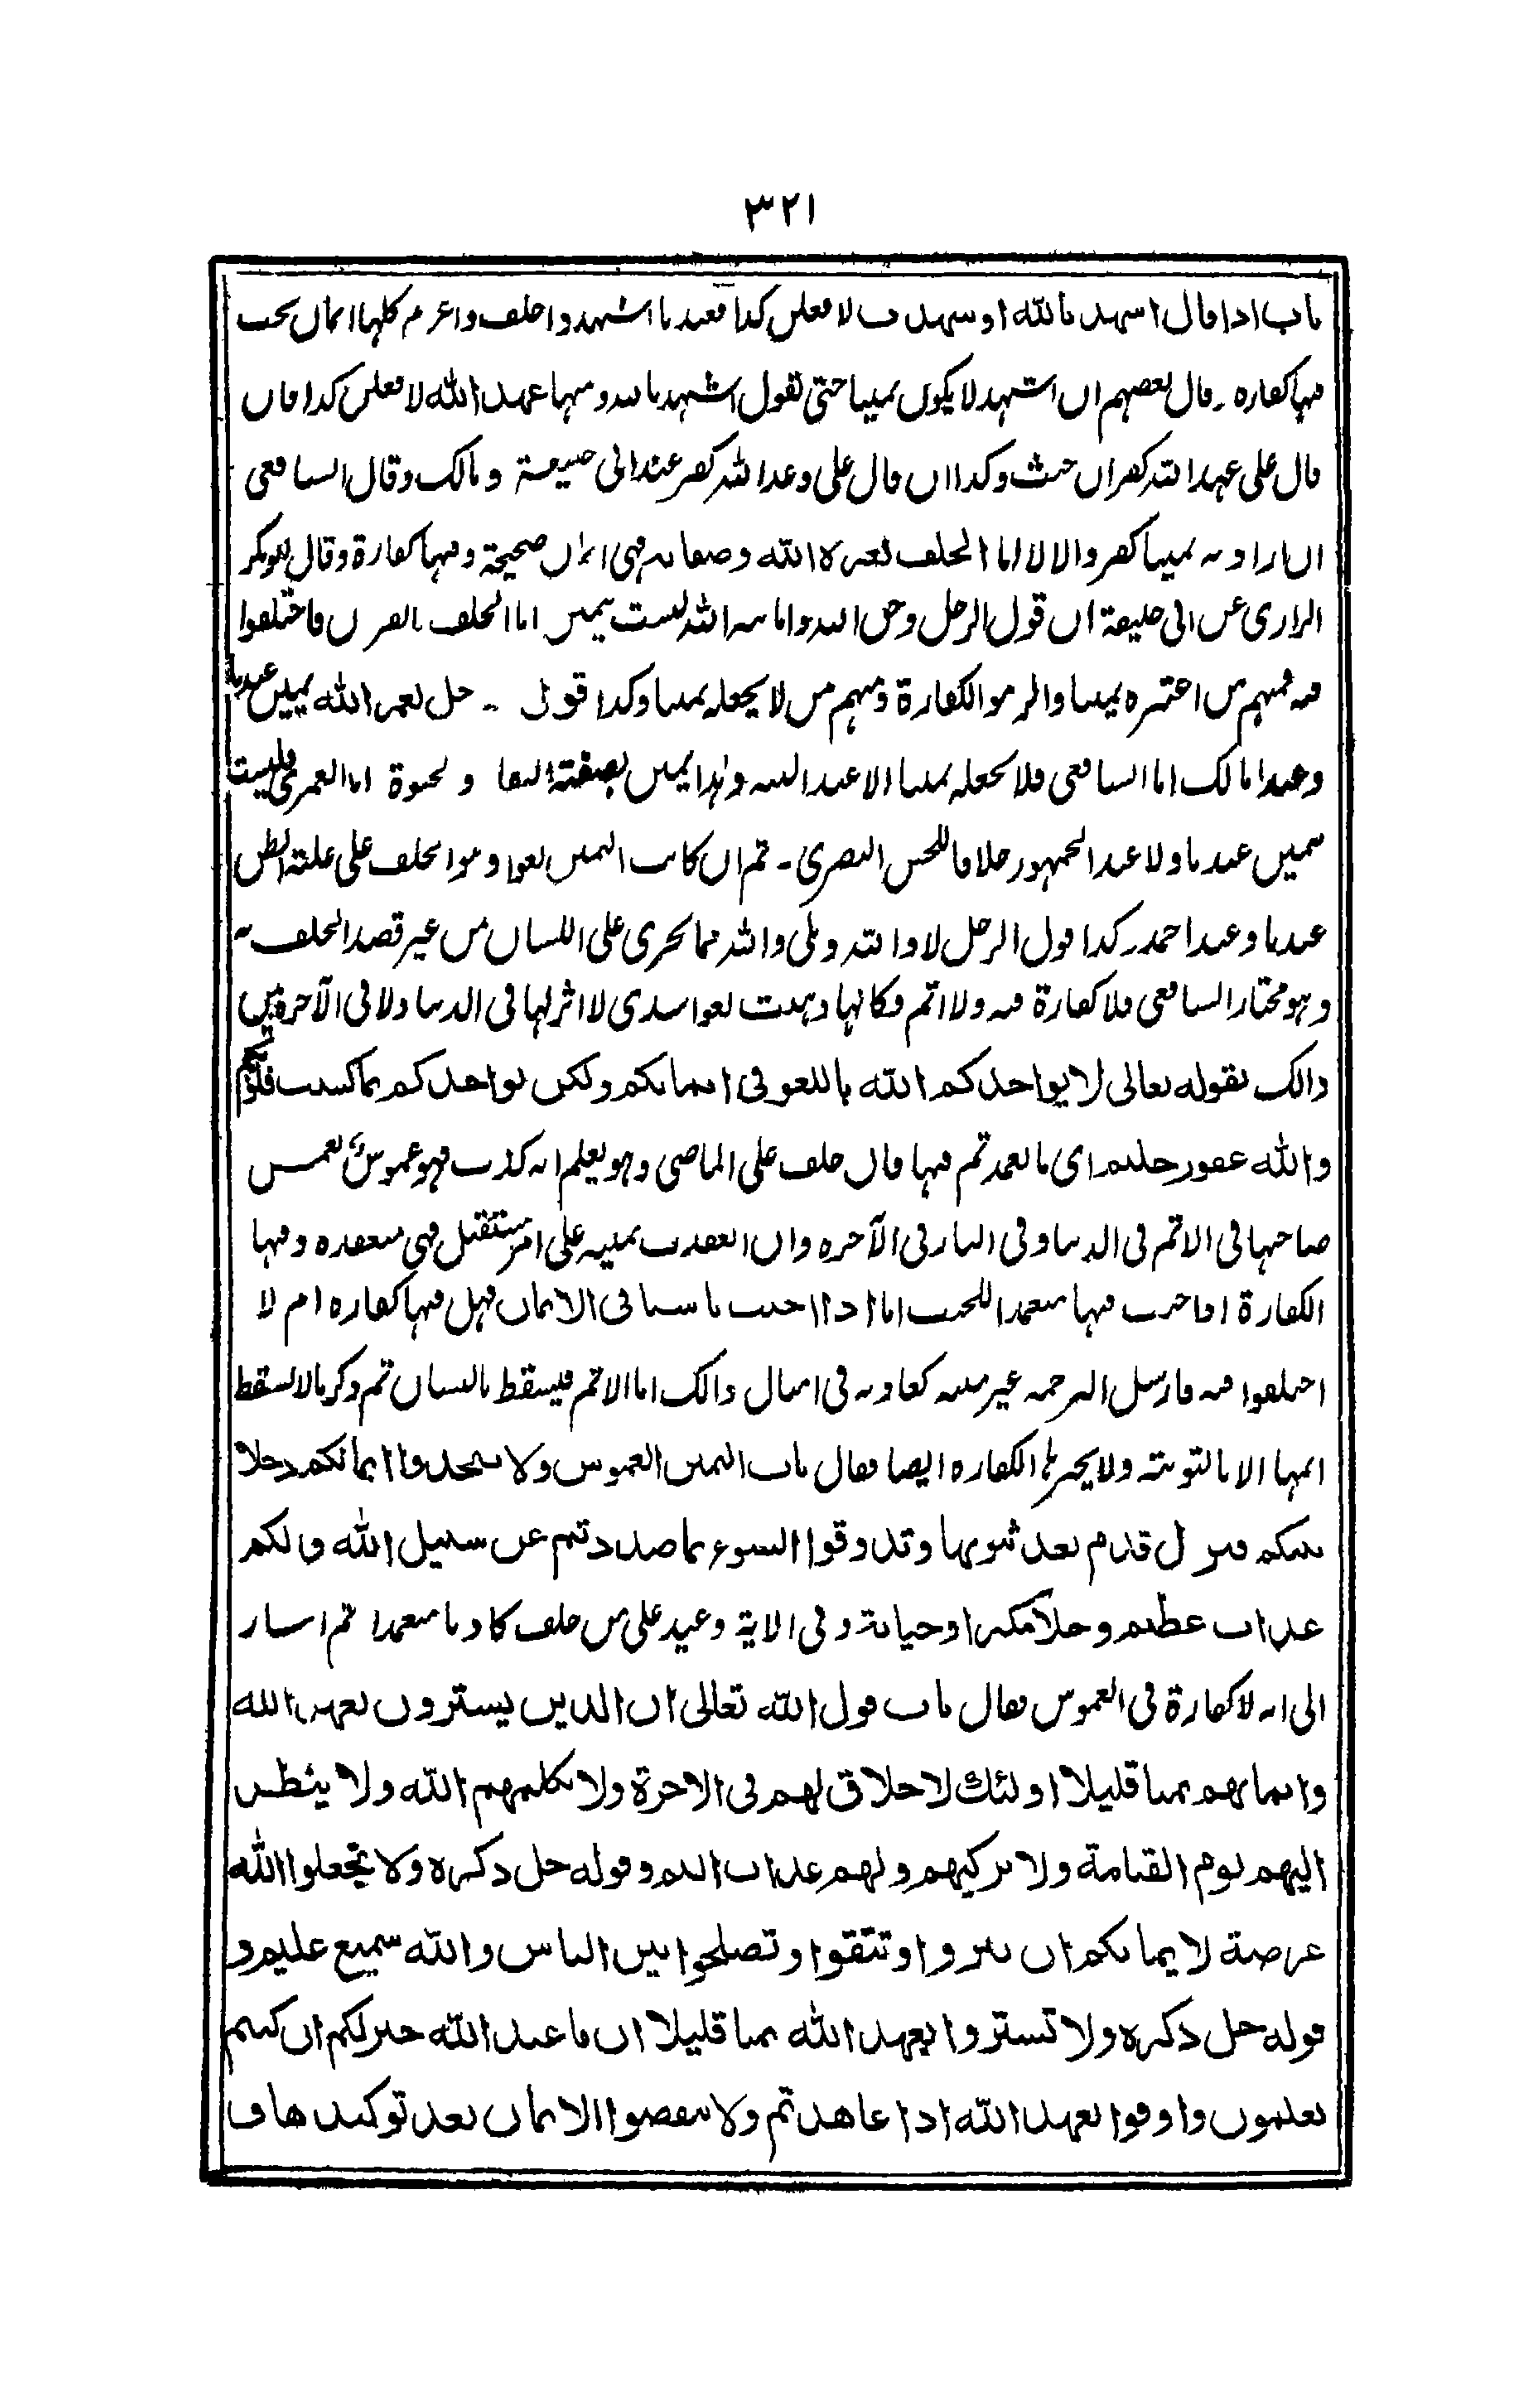 ٣٢١
باب اذا قال اشهد بالله او شهدت لافعلن كذا فعندنا اشهد واحلف واعزم كلها ايمان يجب
فيها كفاره ۔ قال بعضهم ان اشهد لا يكون يمينا حتى يقول اشهد بالله ومنها عهد الله لافعلن كذا فان
قال على عهد الله كفر ان حنث وكذا ان قال على وعد الله كفر عند ابى حنيفة ومالك وقال الشافعى
ان اراد به يمينا كفر والا لا اما الحلف بعزة الله وصفاته فهى ايمان صحيحة وفيها كفارة وقال ابوبكر
الرازى عن ابى حنيفة ان قول الرجل وحق الله وامانة الله ليست بيمين اما الحلف بالقرآن فاختلفوا
فيه فمنهم من اعتبره يمينا والزموا الكفارة ومنهم من لا يجعله يمينا وكذا قول ۔ حل لعمر الله يمين عندنا
وعند مالك اما الشافعى فلا يجعله يمينا الا عند النيه وهذا يمين بصفته البقا ولحيوة اما لعمرى فليست
بيمين عندنا ولا عند الجمهور خلافا للحسن البصرى ۔ ثم ان كانت اليمين لغوا وهو الحلف على غلبة الظن
عندنا وعند احمد وكذا قول الرجل لا والله وبلى والله مما يجرى على اللسان من غير قصد الحلف به
وهو مختار الشافعى فلا كفارة فيه ولا اثم فكانها ذهبت لغوا سدى لا اثر لها فى الدنيا ولا فى الآخرة بين
ذالك بقوله تعالى لا يواخذكم الله باللغو فى ايمانكم ولكن يواخذكم بما كسبت قلوبكم
والله غفور حليم اى ما تعمدتم فيها فان حلف على الماضى وهو يعلم انه كذب فهو غموس تغمس
صاحبها فى الاثم فى الدنيا وفى النار فى الآخره وان انعقدت يمينه على امر مستقبل فهى منعقده وفيها
الكفارة اذا حنث فيها متعمدا للحنث اما اذا حنث ناسيا فى الايمان فهل فيها كفاره ام لا
اختلفوا فيه فارسل الترجمه غير مبينه كعادته فى امثال ذالك اما الاثم فيسقط بالنسيان ثم ذكر ما لا يسقط
اثمها الا بالتوبته ولا يجبرها الكفاره ايضا فقال باب اليمين الغموس ولا تتخذوا ايمانكم دخلا
بينكم فتزل قدم بعد ثبوتها وتذوقوا السوء بما صددتم عن سبيل الله ولكم
عذاب عظيم دخلا مكرا وخيانة وفى الاية وعيد على من حلف كاذبا متعمدا ثم اشار
الى انه لا كفارة فى الغموس فقال باب قول الله تعالى ان الذين يشترون بعهد الله
وايمانهم ثمنا قليلا اولئك لا خلاق لهم فى الاخرة ولا يكلمهم الله ولا ينظر
اليهم يوم القيامة ولا يزكيهم ولهم عذاب اليم وقوله جل ذكره ولا تجعلوا الله
عرضة لايمانكم ان تبروا وتتقوا وتصلحوا بين الناس والله سميع عليم و
قوله جل ذكره ولا تشتروا بعهد الله ثمنا قليلا ان ما عند الله خير لكم ان كنتم
تعلمون واوفوا بعهد الله اذا عاهدتم ولا تنقضوا الايمان بعد توكيدها و